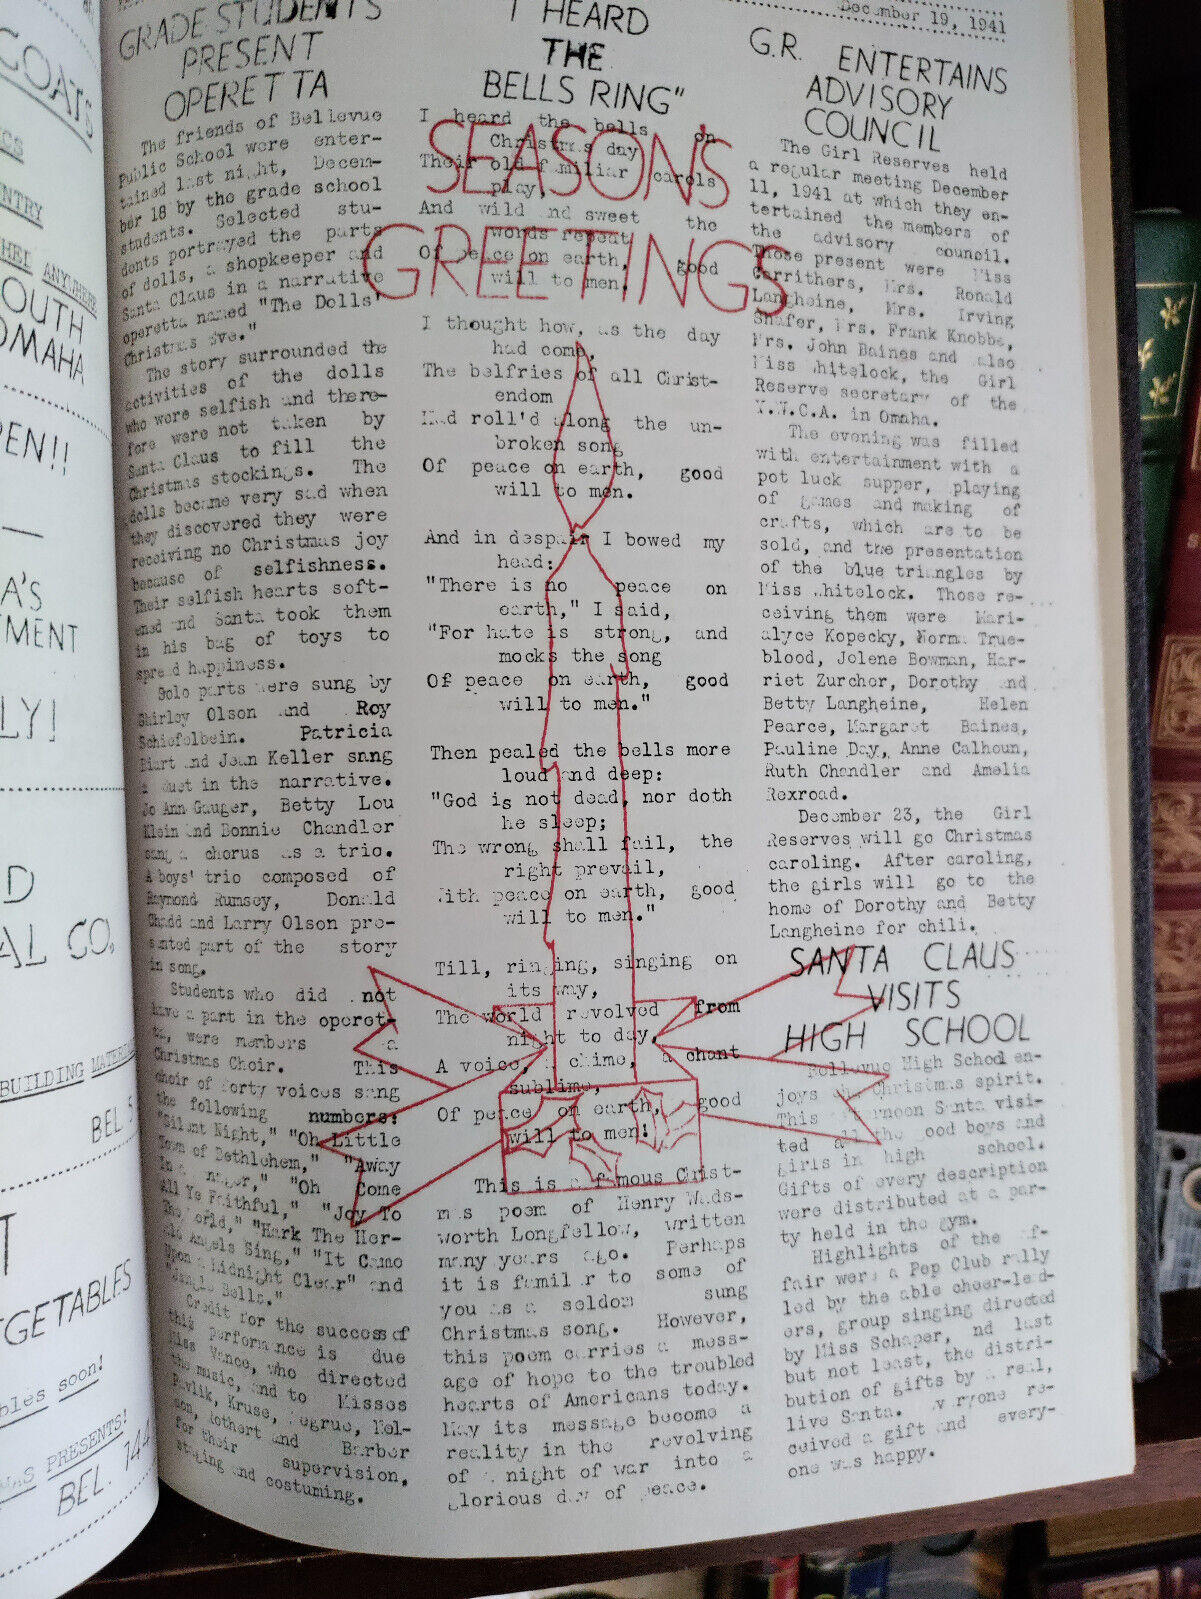 COATS
ENTRY
ANYWHERE
SOUTH
OMAHA
OPEN!!
LY!
CO,
BUILDING MATERIAL
BEL 5
VEGETABLES
soon!
PRESENTS!
BEL. 144
December 19, 1941
GRADE STUDENTS
PRESENT
OPERETTA
The friends of Bellevue
Public School were enter-
tained last night, Decem-
ber 18 by the grade school
students. Selected stu-
dents portrayed the parts
of dolls, a shopkeeper and
Santa Claus in a narrative
operetta named "The Dolls'
Christmas Eve."
The story surrounded the
activities of the dolls
who were selfish and there-
fore were not taken by
Santa Claus to fill the
Christmas stockings. The
dolls became very sad when
they discovered they were
receiving no Christmas joy
because of selfishness.
Their selfish hearts soft-
ened and Santa took them
in his bag of toys to
spread happiness.
Solo parts were sung by
Shirley Olson and Roy
Schiefelbein. Patricia
Hiart and Jean Keller sang
a duet in the narrative.
Jo Ann Gauger, Betty Lou
Klein and Bonnie Chandler
sang a chorus as a trio.
A boys' trio composed of
Raymond Rumsey, Donald
Chadd and Larry Olson pre-
sented part of the story
in song.
Students who did not
have a part in the operet-
ta, were members a
Christmas Choir. This
choir of forty voices sang
the following numbers:
"Silent Night," "Oh Little
Town of Bethlehem," "Away
In a Manger," "Oh Come
All Ye Faithful," "Joy To
The World," "Hark The Her-
ald Angels Sing," "It Came
Upon a Midnight Clear" and
"Jingle Bells."
Credit for the success of
this performance is due
Miss Vance, who directed
the music, and to Misses
Pavlik, Kruse, Negrue, Nel-
son, Rothert and Barber
for their supervision,
staging and costuming.
"I HEARD
THE
BELLS RING"
SEASON'S
GREETINGS
I heard the bells on
Christmas day
Their old familiar carols
play,
And wild and sweet the
words repeat
Of peace on earth, good
will to men.
I thought how, as the day
had come,
The belfries of all Christ-
endom
Had roll'd along the un-
broken song
Of peace on earth, good
will to men.
And in despair I bowed my
head:
"There is no peace on
earth," I said,
"For hate is strong, and
mocks the song
Of peace on earth, good
will to men."
Then pealed the bells more
loud and deep:
"God is not dead, nor doth
he sleep;
The wrong shall fail, the
right prevail,
With peace on earth, good
will to men."
Till, ringing, singing on
its way,
The world revolved from
night to day,
A voice, a chime, a chant
sublime,
Of peace on earth, good
will to men!
This is a famous Christ-
mas poem of Henry Wads-
worth Longfellow, written
many years ago. Perhaps
it is familar to some of
you as a seldom sung
Christmas song. However,
this poem carries a mess-
age of hope to the troubled
hearts of Americans today.
May its message become a
reality in the revolving
of a night of war into a
glorious day of peace.
G.R. ENTERTAINS
ADVISORY
COUNCIL
The Girl Reserves held
a regular meeting December
11, 1941 at which they en-
tertained the members of
the advisory council.
Those present were Miss
Carrithers, Mrs. Ronald
Langheine, Mrs. Irving
Shafer, Mrs. Frank Knobbe,
Mrs. John Baines and also
Miss Whitelock, the Girl
Reserve secretary of the
Y.W.C.A. in Omaha.
The evening was filled
with entertainment with a
pot luck supper, playing
of games and making of
crafts, which are to be
sold, and the presentation
of the blue triangles by
Miss Whitelock. Those re-
ceiving them were Mari-
alyce Kopecky, Norma True-
blood, Jolene Bowman, Har-
riet Zurcher, Dorothy and
Betty Langheine, Helen
Pearce, Margaret Baines,
Pauline Day, Anne Calhoun,
Ruth Chandler and Amelia
Rexroad.
December 23, the Girl
Reserves will go Christmas
caroling. After caroling,
the girls will go to the
home of Dorothy and Betty
Langheine for chili.
SANTA CLAUS
VISITS
HIGH SCHOOL
Bellevue High School en-
joys the Christmas spirit.
This afternoon Santa visi-
ted all the good boys and
girls in high school.
Gifts of every description
were distributed at a par-
ty held in the gym.
Highlights of the af-
fair were a Pep Club rally
led by the able cheer-lead-
ers, group singing directed
by Miss Schaper, and last
but not least, the distri-
bution of gifts by a real,
live Santa. Everyone re-
ceived a gift and every-
one was happy.